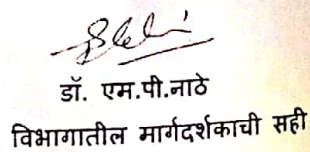 डॉ. एम.पी.नाठे
विभागातील मार्गदर्शकाची सही